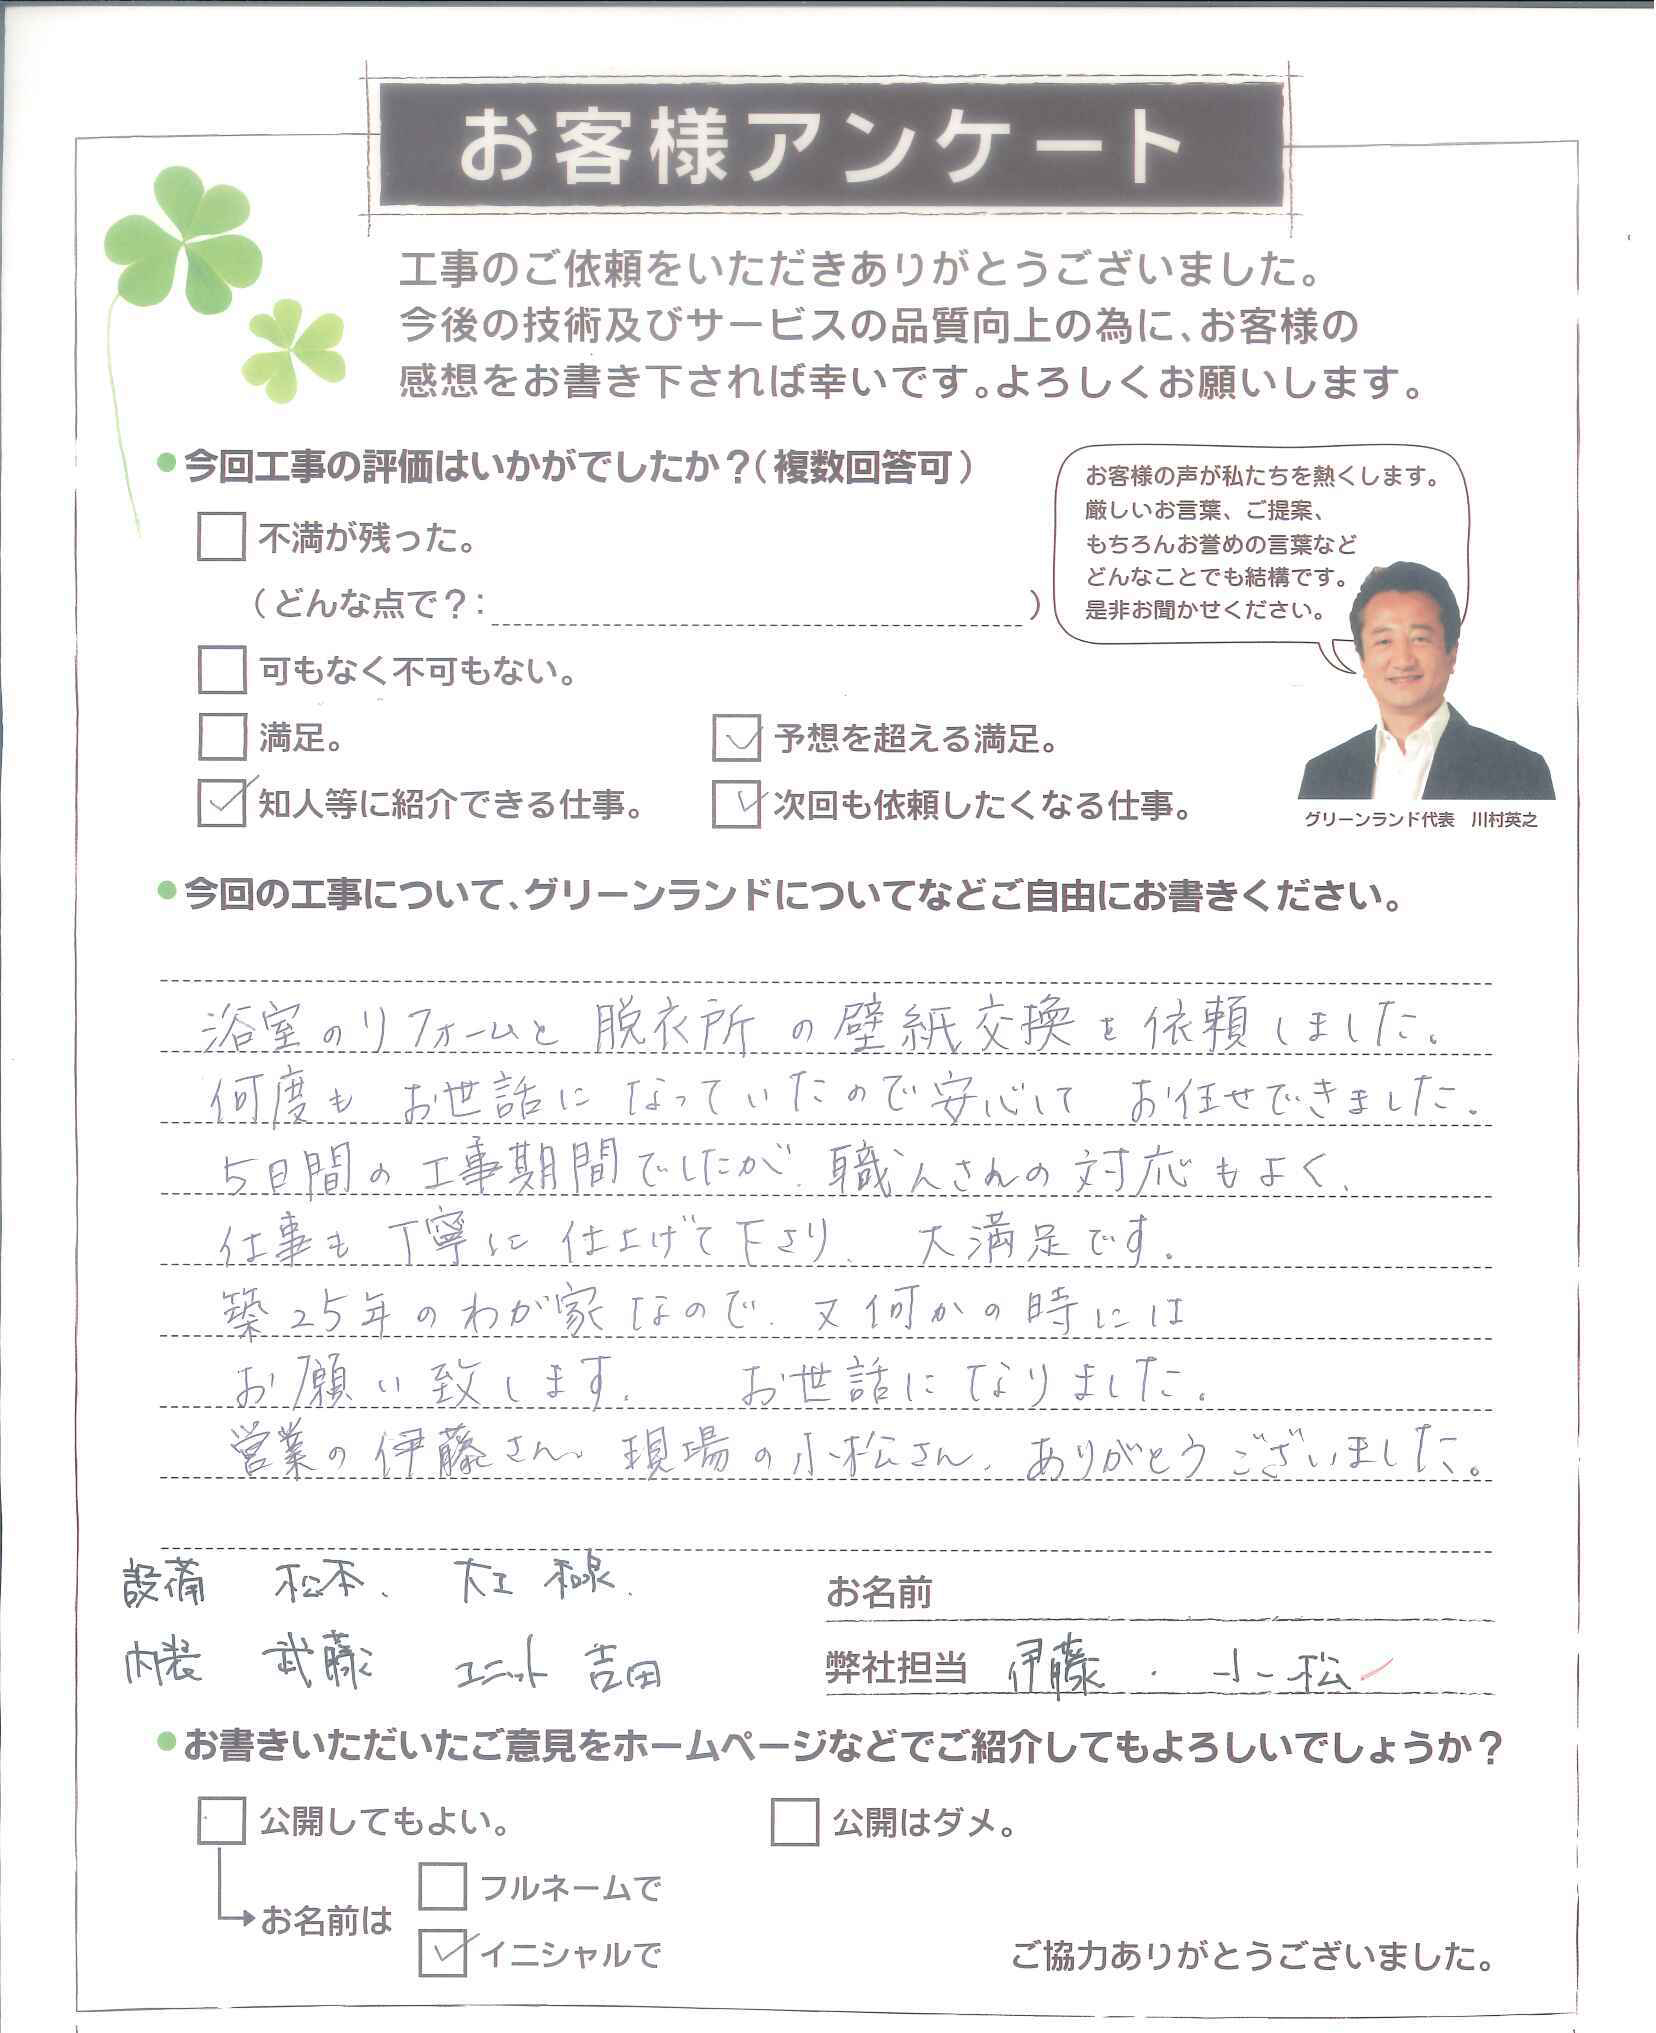 お客様アンケート
工事のご依頼をいただきありがとうございました。
今後の技術及びサービスの品質向上の為に、お客様の
感想をお書き下されば幸いです。よろしくお願いします。
今回工事の評価はいかがでしたか？（複数回答可）
不満が残った。
（どんな点で？：　）
可もなく不可もない。
満足。
予想を超える満足。
知人等に紹介できる仕事。
次回も依頼したくなる仕事。
お客様の声が私たちを熱くします。
厳しいお言葉、ご提案、
もちろんお誉めの言葉など
どんなことでも結構です。
是非お聞かせください。
グリーンランド代表　川村英之
今回の工事について、グリーンランドについてなどご自由にお書きください。
浴室のリフォームと脱衣所の壁紙交換を依頼しました。
何度もお世話になっていたので安心してお任せできました。
5日間の工事期間でしたが、職人さんの対応もよく、
仕事も丁寧に仕上げて下さり、大満足です。
築25年のわが家なので、又何かの時には
お願い致します。　お世話になりました。
営業の伊藤さん、現場の小松さん、ありがとうございました。
設備　松本、　大工
内装　武藤　ユニット　吉田
お名前
弊社担当　伊藤　・　小松
お書きいただいたご意見をホームページなどでご紹介してもよろしいでしょうか？
公開してもよい。
公開はダメ。
お名前は
フルネームで
イニシャルで
ご協力ありがとうございました。